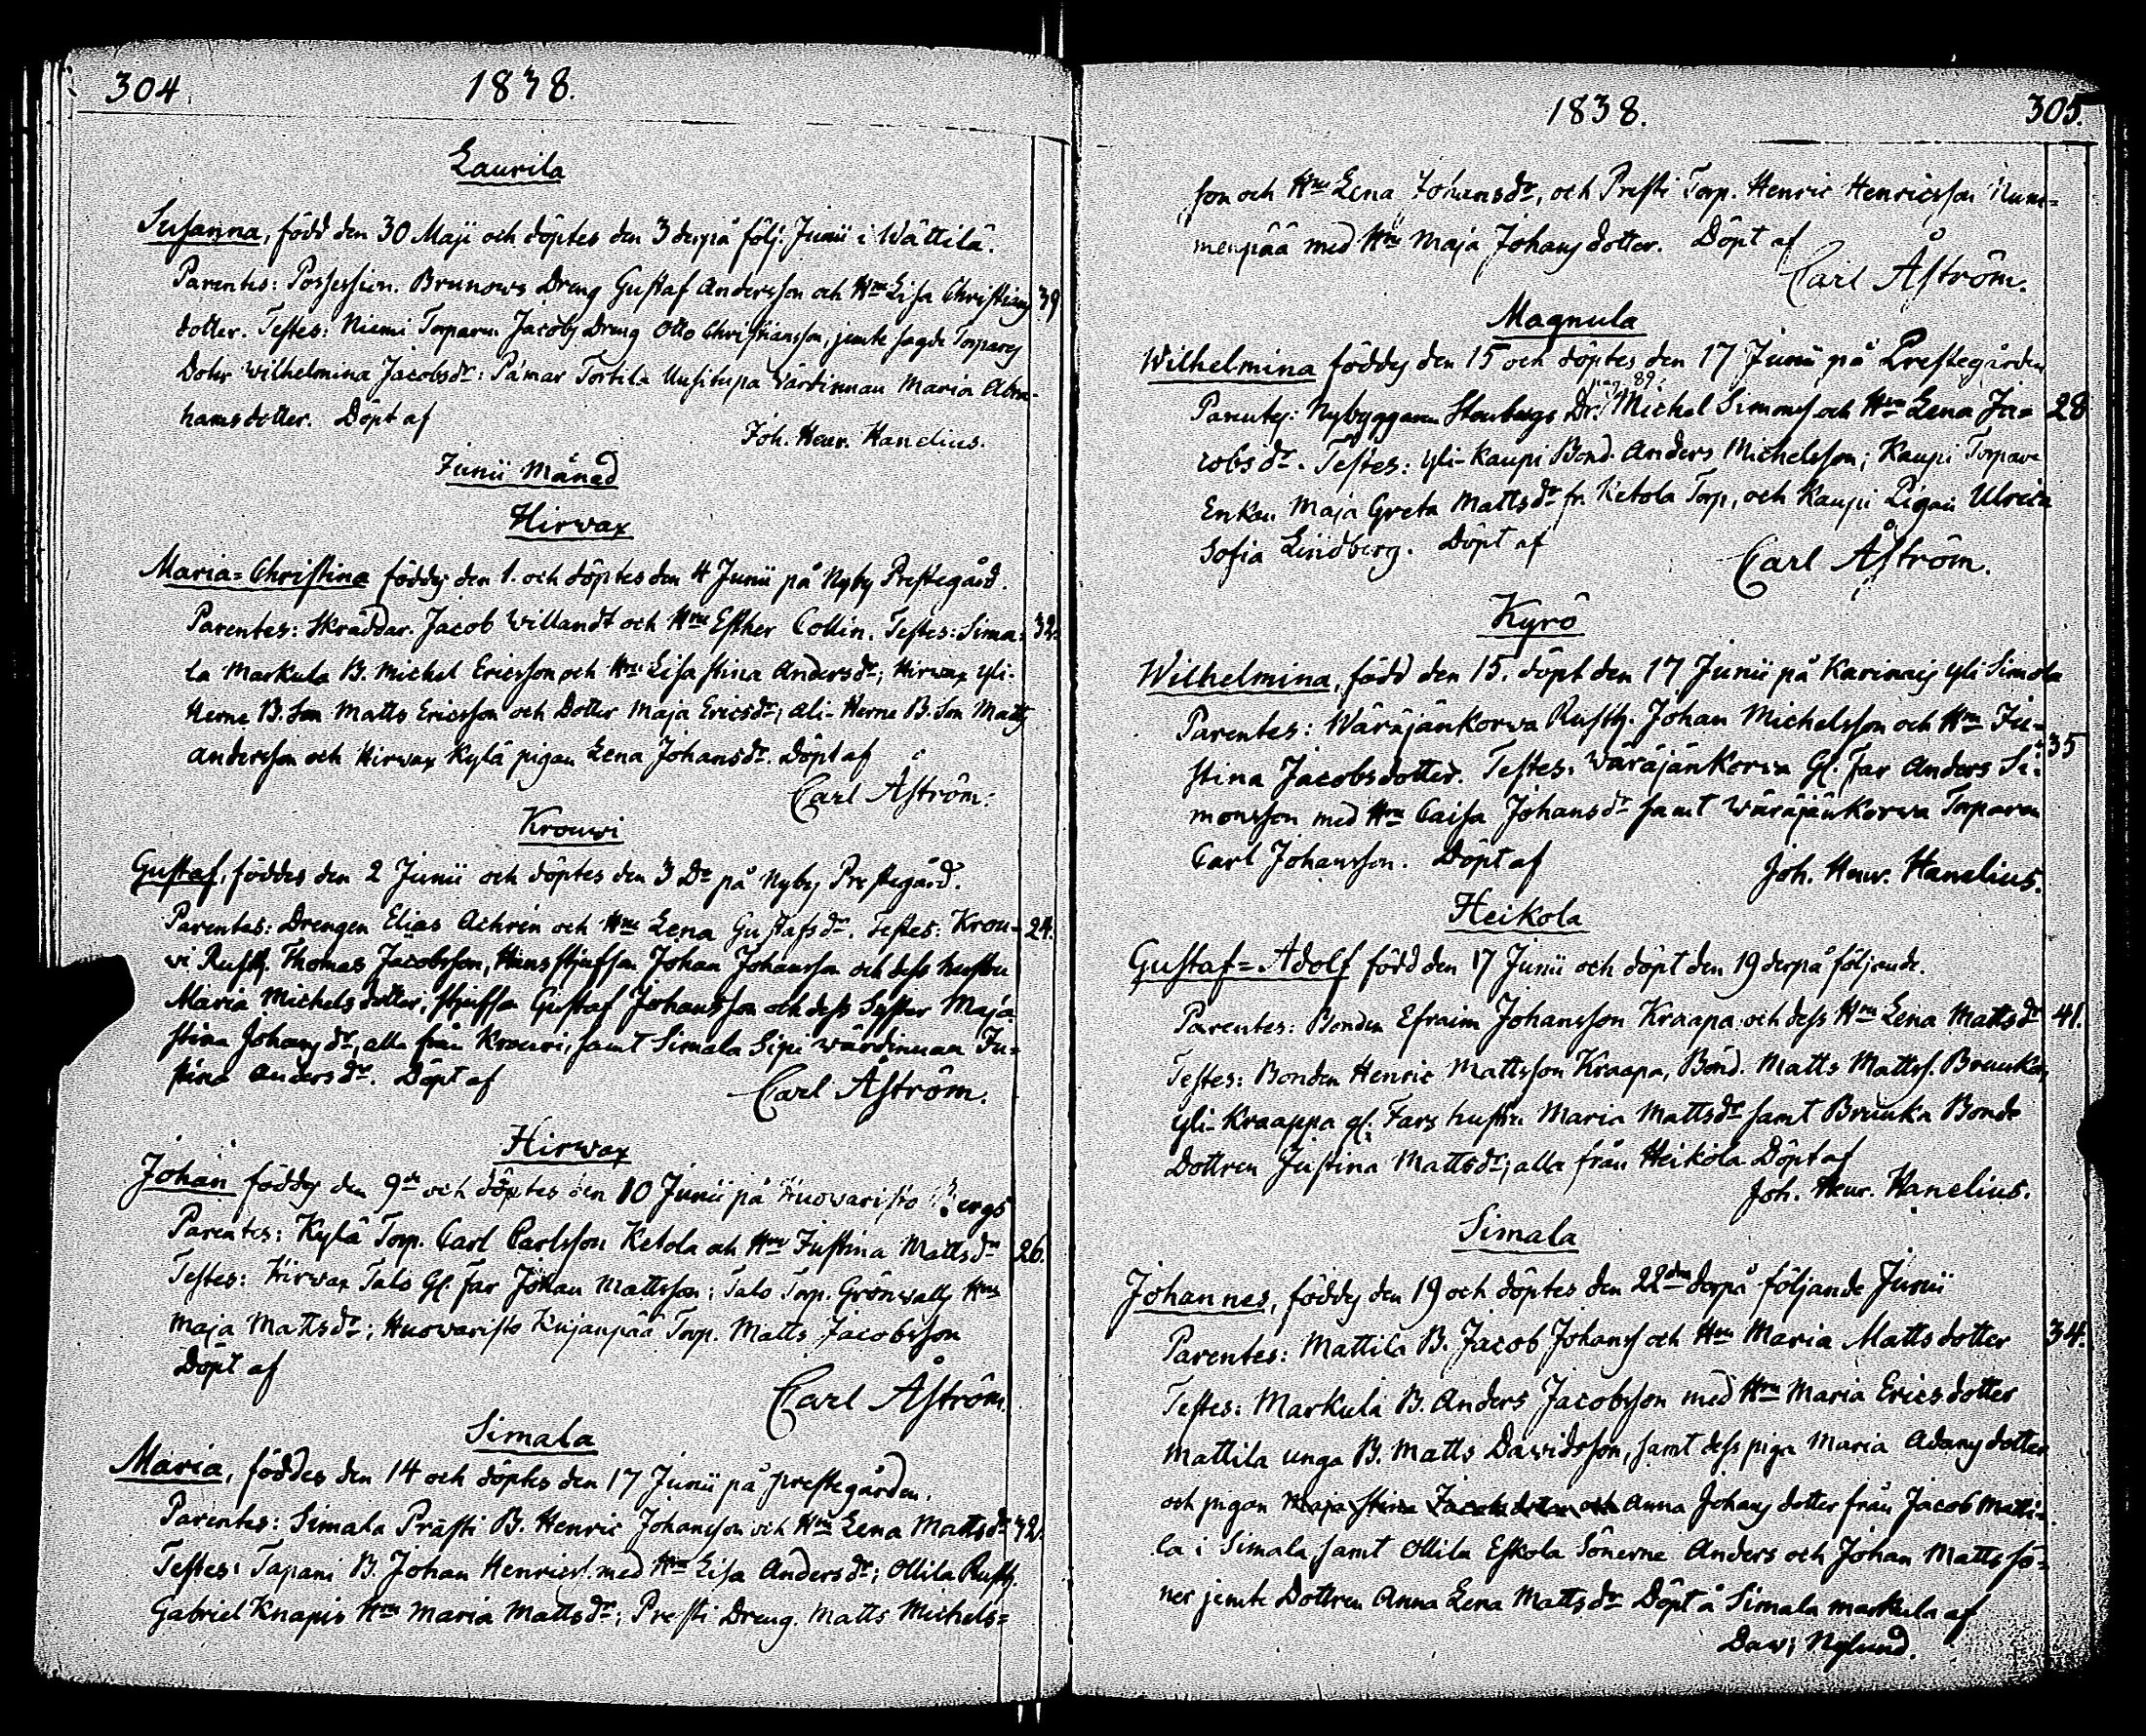 304.
1838.
Laurila
Susanna, född den 30 Maji och döptes den 3 derpå följ. Junii i Wättilä.
Parentes: Possession. Brunows Dreng Gustaf Andersson och Hru Lisa Christians
39
dotter. Testes: Niemi Torparn Jacobs Dreng Otto Christiansson, jemte sagde Torpares
Doter Wilhelmina Jacobsdr: Pämar Tortila Uusitupa Värdinnan Maria Abra-
hamsdotter. Döpt af
Joh. Henr. Hanelius.
Junii Månad
Hirwax
Maria=Christina föddes den 1. och döptes den 4 Junii på Nyby Prestegård.
Parentes: Skräddar. Jacob Willandt och Hru Esther Collin. Testes: Sima-
32.
la Markula B. Michel Ericsson och Hru Lisa Stina Andersdr; Hirwax Yli-
Herne B. Son Matts Ericsson och Dotter Maja Ericsdr; Ali-Herne B. Son Matts
Andersson och Hirwax Kylä pigan Lena Johansdr. Döpt af
Carl Åström.
Krouwi
Gustaf, föddes den 2 Junii och döptes den 3 Do på Nyby Prestegård.
Parentes: Drengen Elias Achrén och Hru Lena Gustafsdr. Testes: Krou-
24.
wi Rusth. Thomas Jacobsson, Hans stjufson Johan Johansson och dess hustru
Maria Michelsdotter, stjufson Gustaf Johansson och dess Syster Maja
Stina Johansdr, alla från Krouwi, samt Simala Sipi Wärdinnan Ju-
stina Andersdr. Döpt af
Carl Åström.
Hirwax
Johan föddes den 9de och döptes den 10 Junii på Huovaristo Bergs
Parentes: Kylä Torp. Carl Carlsson Ketola och Hru Justina Mattsdr
26.
Testes: Hirwax Talo Gl. Far Johan Mattsson; Talo Torp. Grönwalls Hru
Maja Mattsdr; Huovaristo Kujanpää Torp. Matts Jacobsson
Döpt af
Carl Åström.
Simala
Maria, föddes den 14 och döptes den 17 Junii på prestegården.
Parentes: Simala Prästi B. Henric Johansson och Hru Lena Mattsdr
32.
Testes: Tapani B. Johan Henrics. med Hru Lisa Andersdr; Ollila Rusth.
Gabriel Knapis Hru Maria Mattsdr; Presti Dreng. Matts Michels=
1838.
305.
son och Hru Lena Johansdr, och Presti Torp. Henric Henricsson Num=
menpää med Hru Maja Johansdotter. Döpt af
Carl Åström.
Magnula
Wilhelmina föddes den 15 och döptes den 17 Junii på Prestegården
pag. 89.
Parentes: Nybyggaren Stenbergs Dr. Michel Simons och Hru Lena Ja=
28
cobsdr. Testes: Yli-Kaupi Bond. Anders Michelsson; Kaupi Torpare
Enkan Maja Greta Mattsdr fr. Ketola Torp, och Kaupi Pigan Ulrica
Sofia Lindberg. Döpt af
Carl Åström.
Kyrö
Wilhelmina, född den 15. döpt den 17 Junii på Karinais Yli Simola
Parentes: Wäräjänkorwa Rusth. Johan Michelsson och Hru Ju-
35
stina Jacobsdotter. Testes: Wäräjänkorwa Gl. Far Anders Si-
monsson med Hru Caisa Johansdr samt Wäräjänkorwa Torparen
Carl Johansson. Döpt af
Joh. Henr. Hanelius.
Heikola
Gustaf=Adolf född den 17 Junii och döpt den 19 derpå följande.
Parentes: Bonden Efraim Johansson Kraapa och dess Hru Lena Mattsdr
41.
Testes: Bonden Henric Mattsson Kraapa, Bond. Matts Mattss. Bruuka,
Yli-Kraappa gl. Fars hustru Maria Mattsdr samt Bruuka Bonde
Dottren Justina Mattsdr; alla från Heikola. Döpt af
Joh. Henr. Hanelius.
Simala
Johannes, föddes den 19 och döptes den 22dra derpå följande Junii
Parentes: Mattila B. Jacob Johans och Hru Maria Mattsdotter
34.
Testes: Markula B. Anders Jacobsson med Hru Maria Ericsdotter
Mattila unga B. Matts Davidsson, samt dess piga Maria Adamsdotter
och pigan Maja Stina Jacobsdotter och Anna Johansdotter från Jacob Matti-
la i Simala samt Ollila Eskola Sönerne Anders och Johan Matts sö-
ner jemte Dottren Anna Lena Mattsdr Döpt å Simala Markula af
Dav; Nylund.